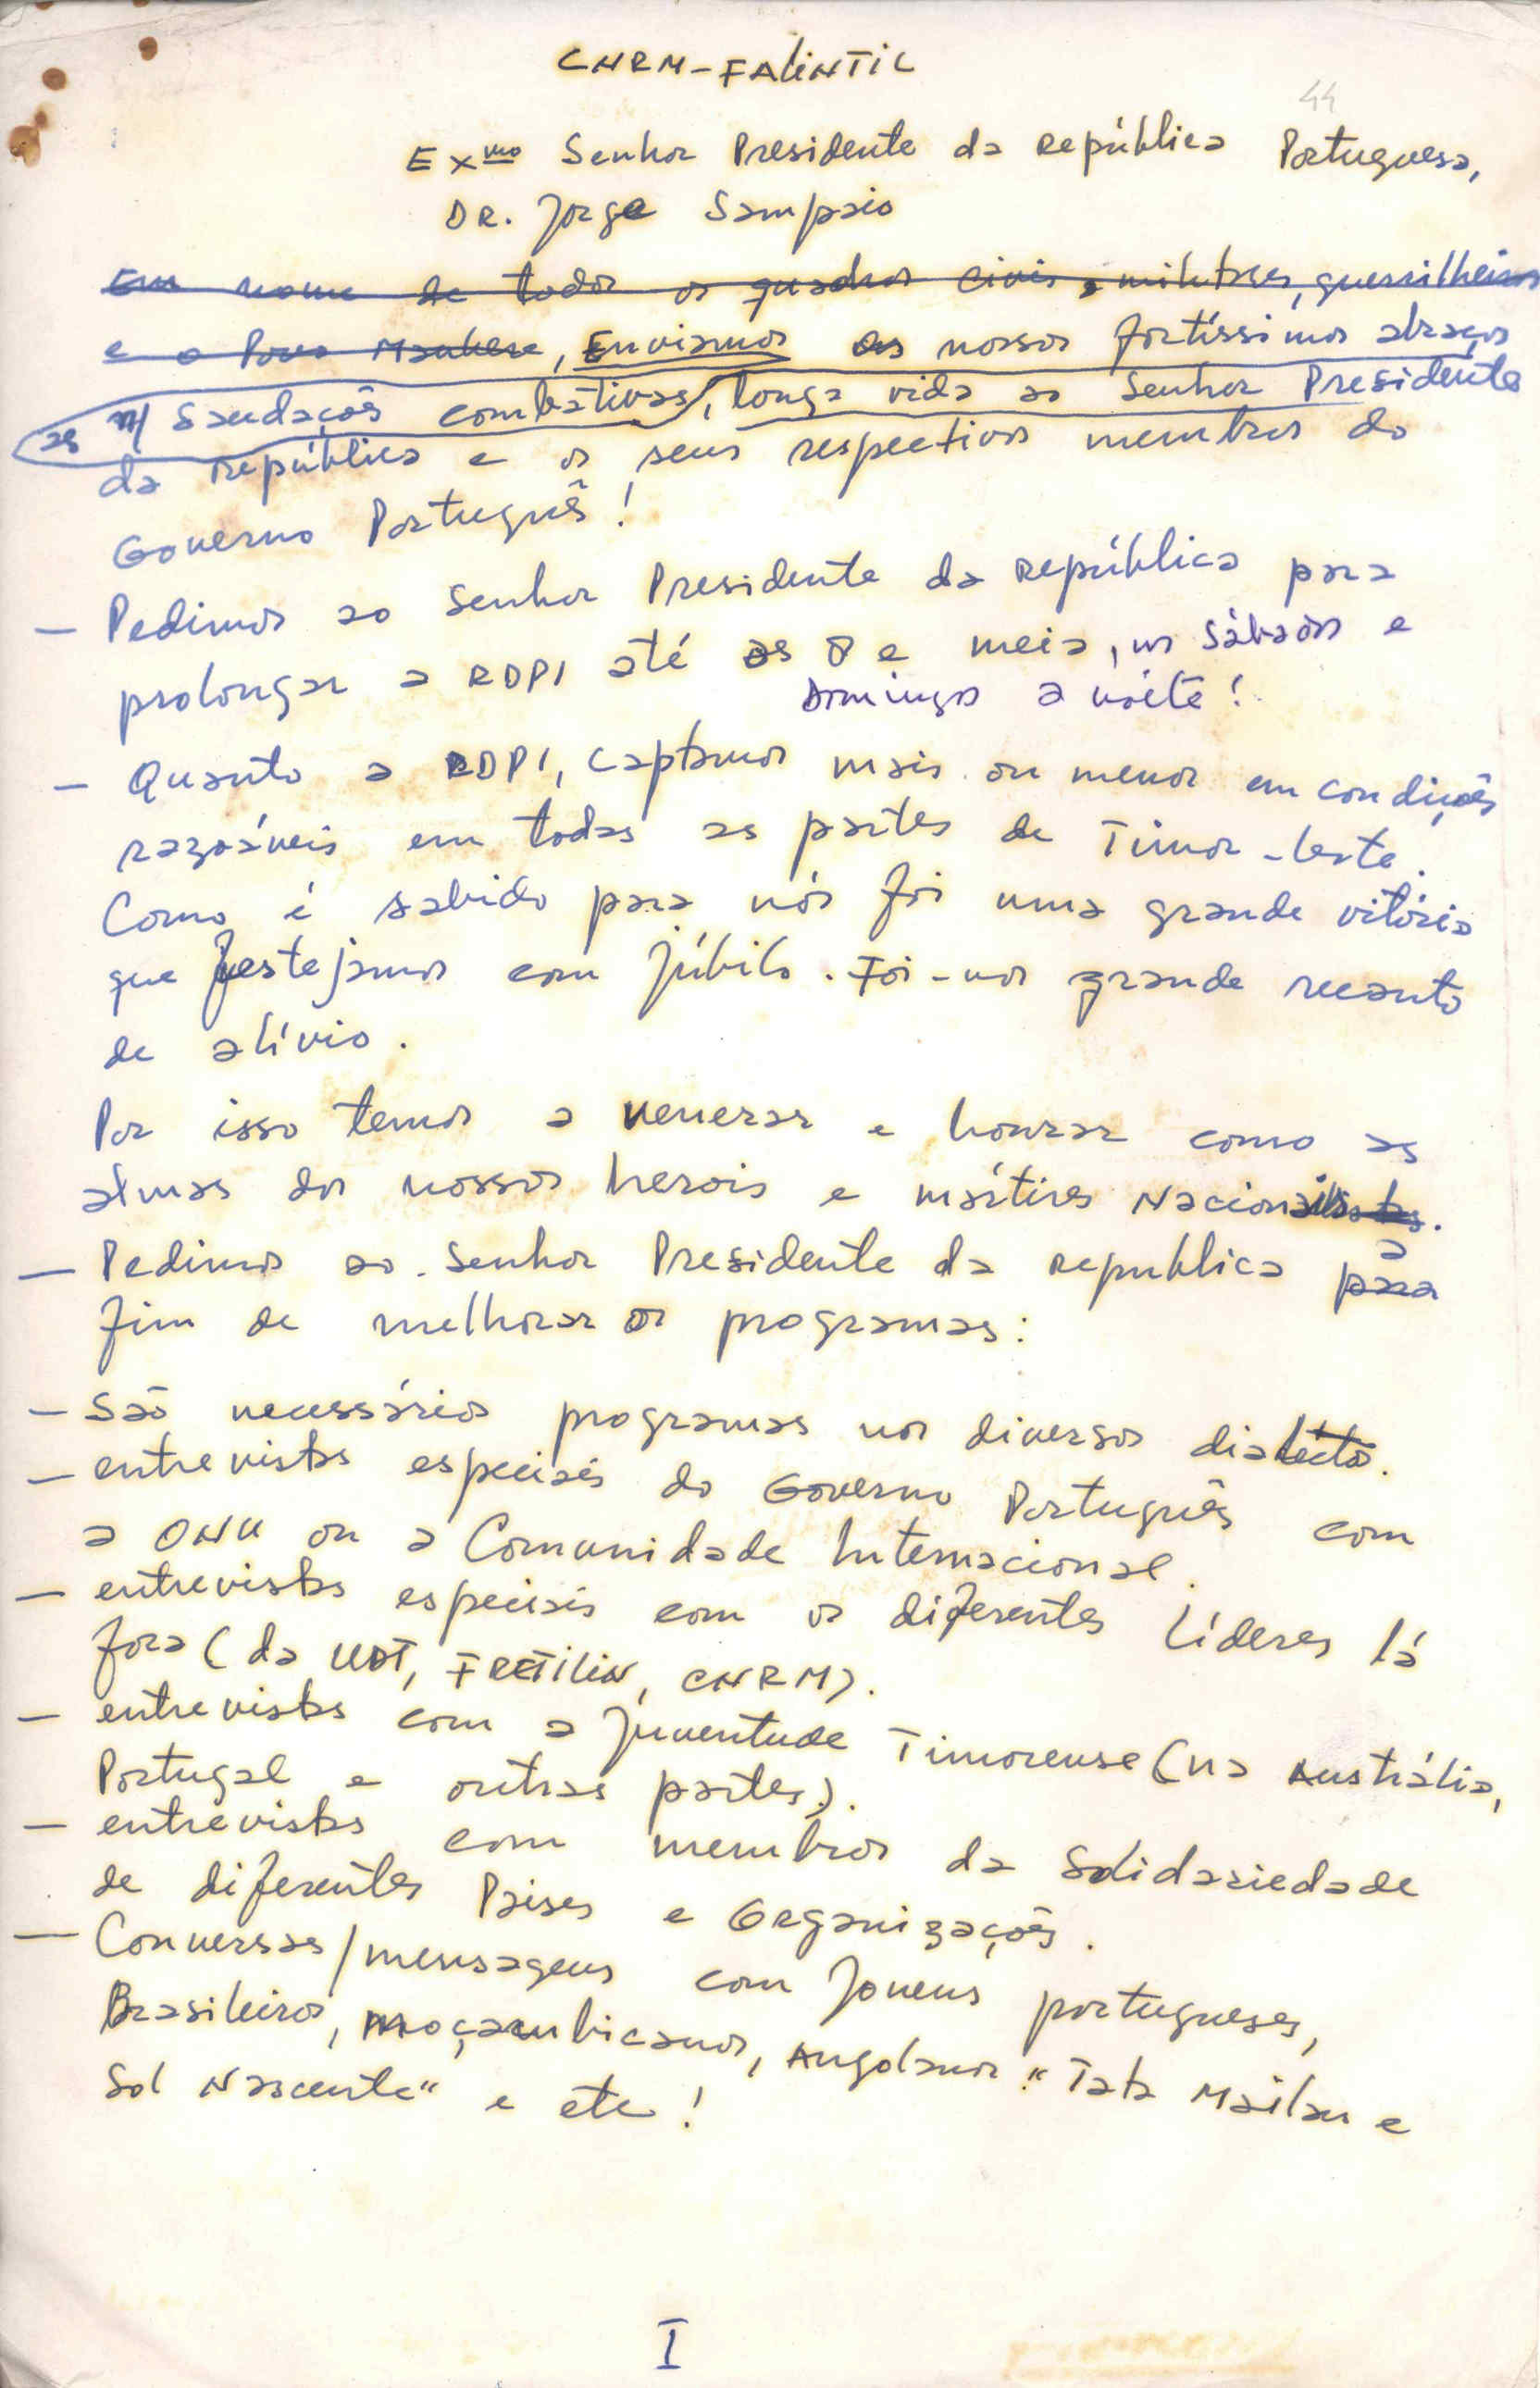 CNRM-FALINTIL
44
Exmo Senhor Presidente da República Portuguesa,
DR. Jorge Sampaio
Em nome de todos os quadros civis, militares, guerrilheiros
e o Povo Maubere, Enviamos os nossos fortíssimos abraços
as n/ Saudações combativas, longa vida ao Senhor Presidente
da república e os seus respectivos membros do
Governo Português!
- Pedimos ao Senhor Presidente da República para
prolongar a RDPI até as 8 e meia, nos Sábados e
Domingos a noite!
- Quanto a RDPI, captamos mais ou menos em condições
razoáveis em todas as partes de Timor-Leste.
Como é sabido para nós foi uma grande vitória
que festejamos com júbilo. Foi-nos grande recanto
de alívio.
Por isso temos a venerar e honrar como as
almas dos nossos herois e mártires Nacionais.
- Pedimos ao Senhor Presidente da republica para a
fim de melhorar os programas:
- São necessários programas nos diversos dialectos.
- entrevistas especiais do Governo Português com
a ONU ou a Comunidade Internacional.
- entrevistas especiais com os diferentes Líderes lá
fora (da UDT, FRETILIN, CNRM).
- entrevistas com a juventude Timorense (na Austrália,
Portugal e outras partes).
- entrevistas com membros da Solidariedade
de diferentes Paises e Organizações.
- Conversas/mensagens com Jovens portugueses,
Brasileiros, moçambicanos, Angolanos "Tata Mailau e
Sol Nascente" e etc!
I